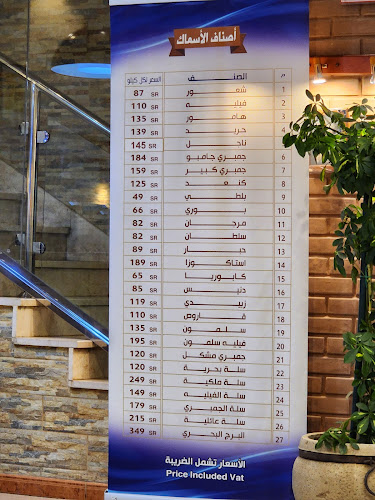 أصناف الأسماك
م الصنف السعر لكل كيلو
1 شعور 87 SR
2 فيليه 110 SR
3 هامور 135 SR
4 حريد 139 SR
5 ناجل 145 SR
6 جمبري جامبو 184 SR
7 جمبري كبير 159 SR
8 كنعد 125 SR
9 بلطي 49 SR
10 بوري 66 SR
11 مرجان 82 SR
12 سلطان 82 SR
13 حبار 89 SR
14 استاكوزا 189 SR
15 كابوريا 65 SR
16 دنيس 85 SR
17 زبيدي 119 SR
18 قاروص 110 SR
19 سلمون 135 SR
20 فيليه سلمون 195 SR
21 جمبري مشكل 120 SR
22 سلة بحرية 120 SR
23 سلة ملكية 249 SR
24 سلة الفيليه 149 SR
25 سلة الجمبري 179 SR
26 سلة عائلية 215 SR
27 البرج البحري 349 SR
الأسعار تشمل الضريبة
Price Included Vat